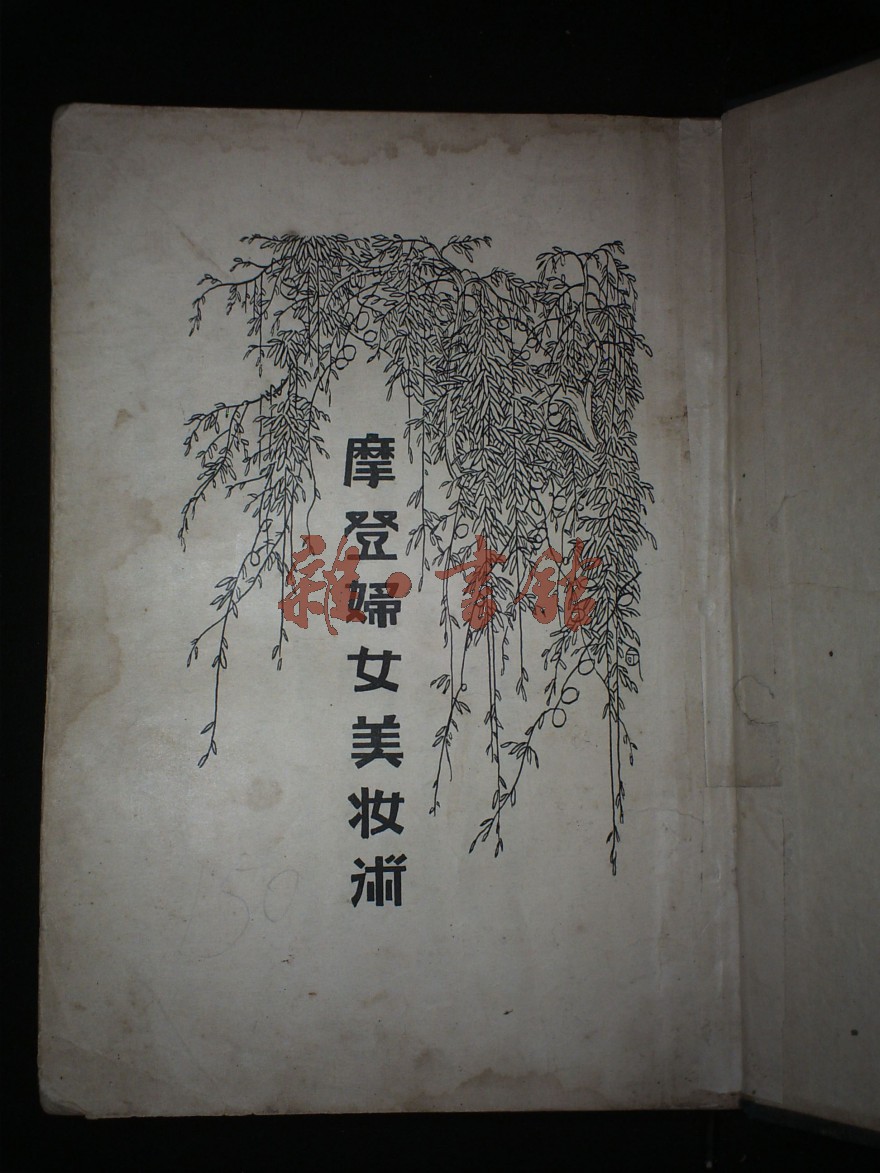 摩登婦女美妆術
雜·書館
50